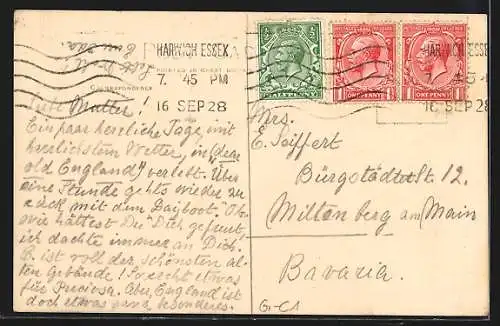 HARWICH ESSEX
7. 45 PM
16 SEP 28
HARWICH ESSEX
7. 45
16 SEP 28
HALFPENNY
ONE PENNY
ONE PENNY
POST CARD
CORRESPONDENCE
Liebe Mutter!
Ein paar herrliche Tage mit
herrlichstem Wetter, in "dear
old England" verlebt. Über
eine Stunde gehts wieder zu-
rück mit dem Dayboot. Oh
wie hättest Du Dich gefreut,
ich dachte immer an Dich.
ist voll der schönsten al-
ten Gebäude! So recht etwas
für Preciosa. Aber England ist
doch etwas ganz besonderes.
Mrs.
E. Seiffert
Bürgstädterstr. 12.
Miltenberg am Main
Bavaria.
G-C1